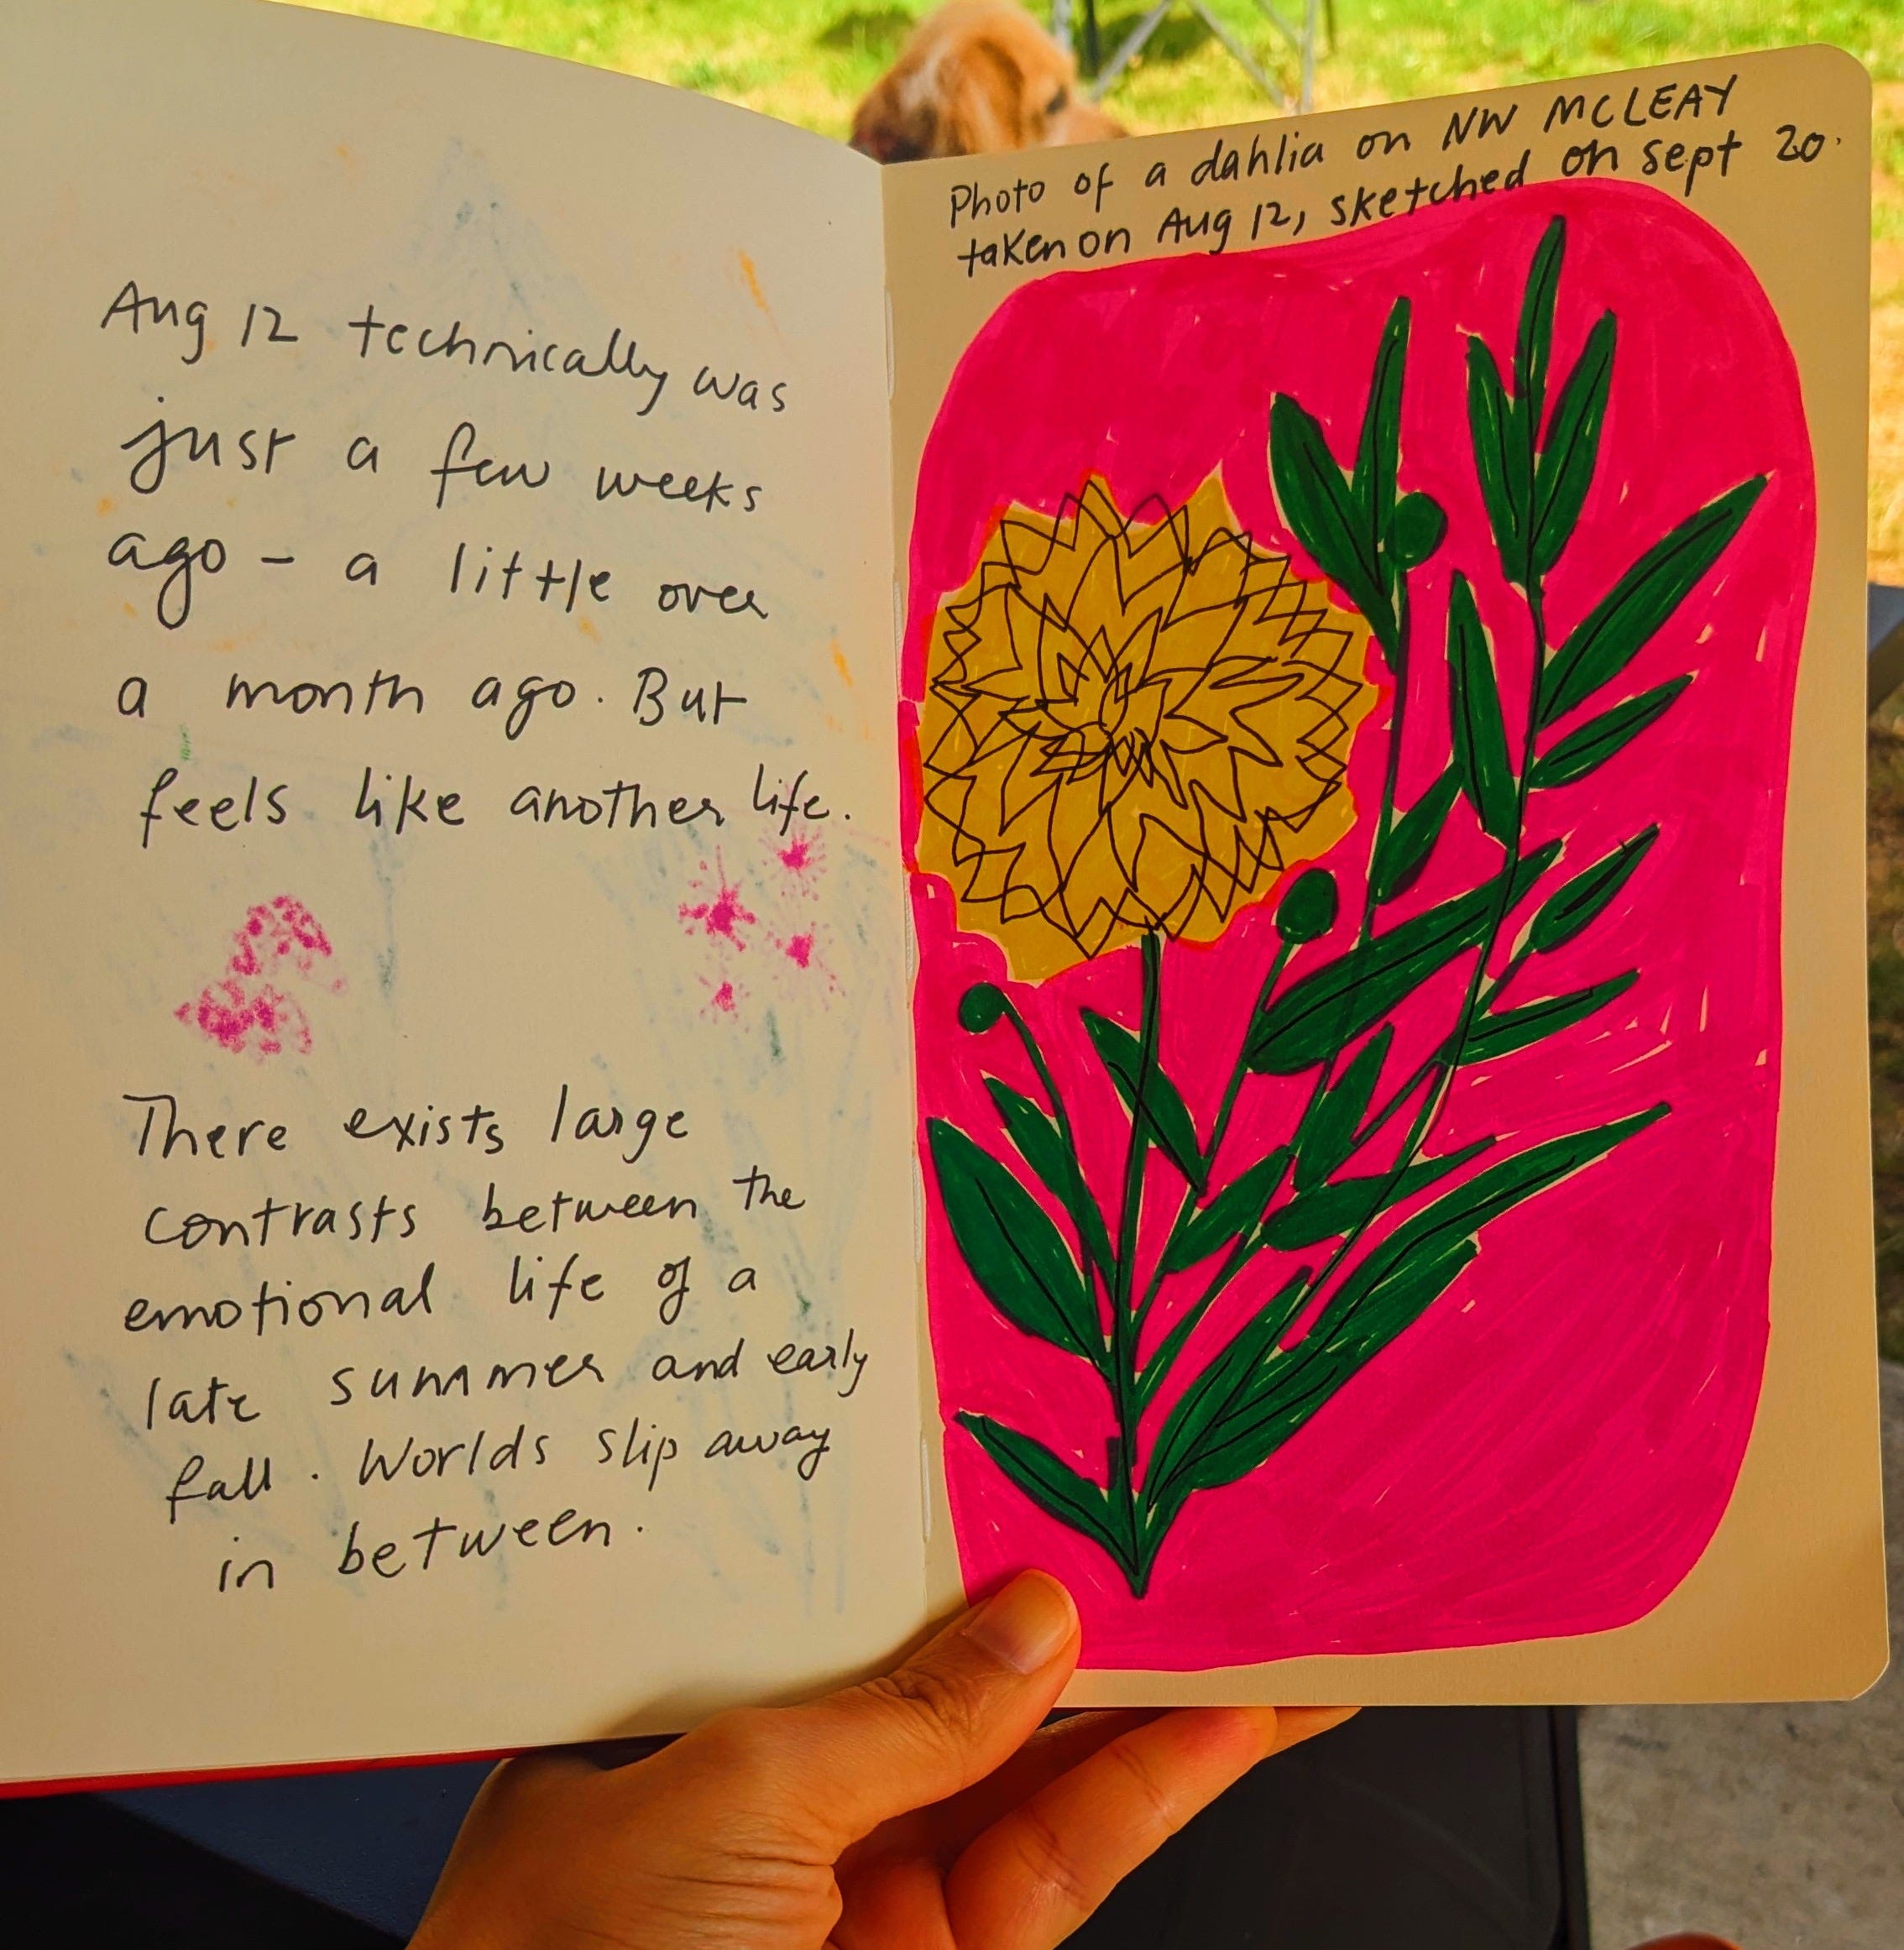 Aug 12 technically was
just a few weeks
ago - a little over
a month ago. But
feels like another life.
There exists large
contrasts between the
emotional life of a
late summer and early
fall. Worlds slip away
in between.
Photo of a dahlia on NW MCLEAY
taken on Aug 12, sketched on sept 20.